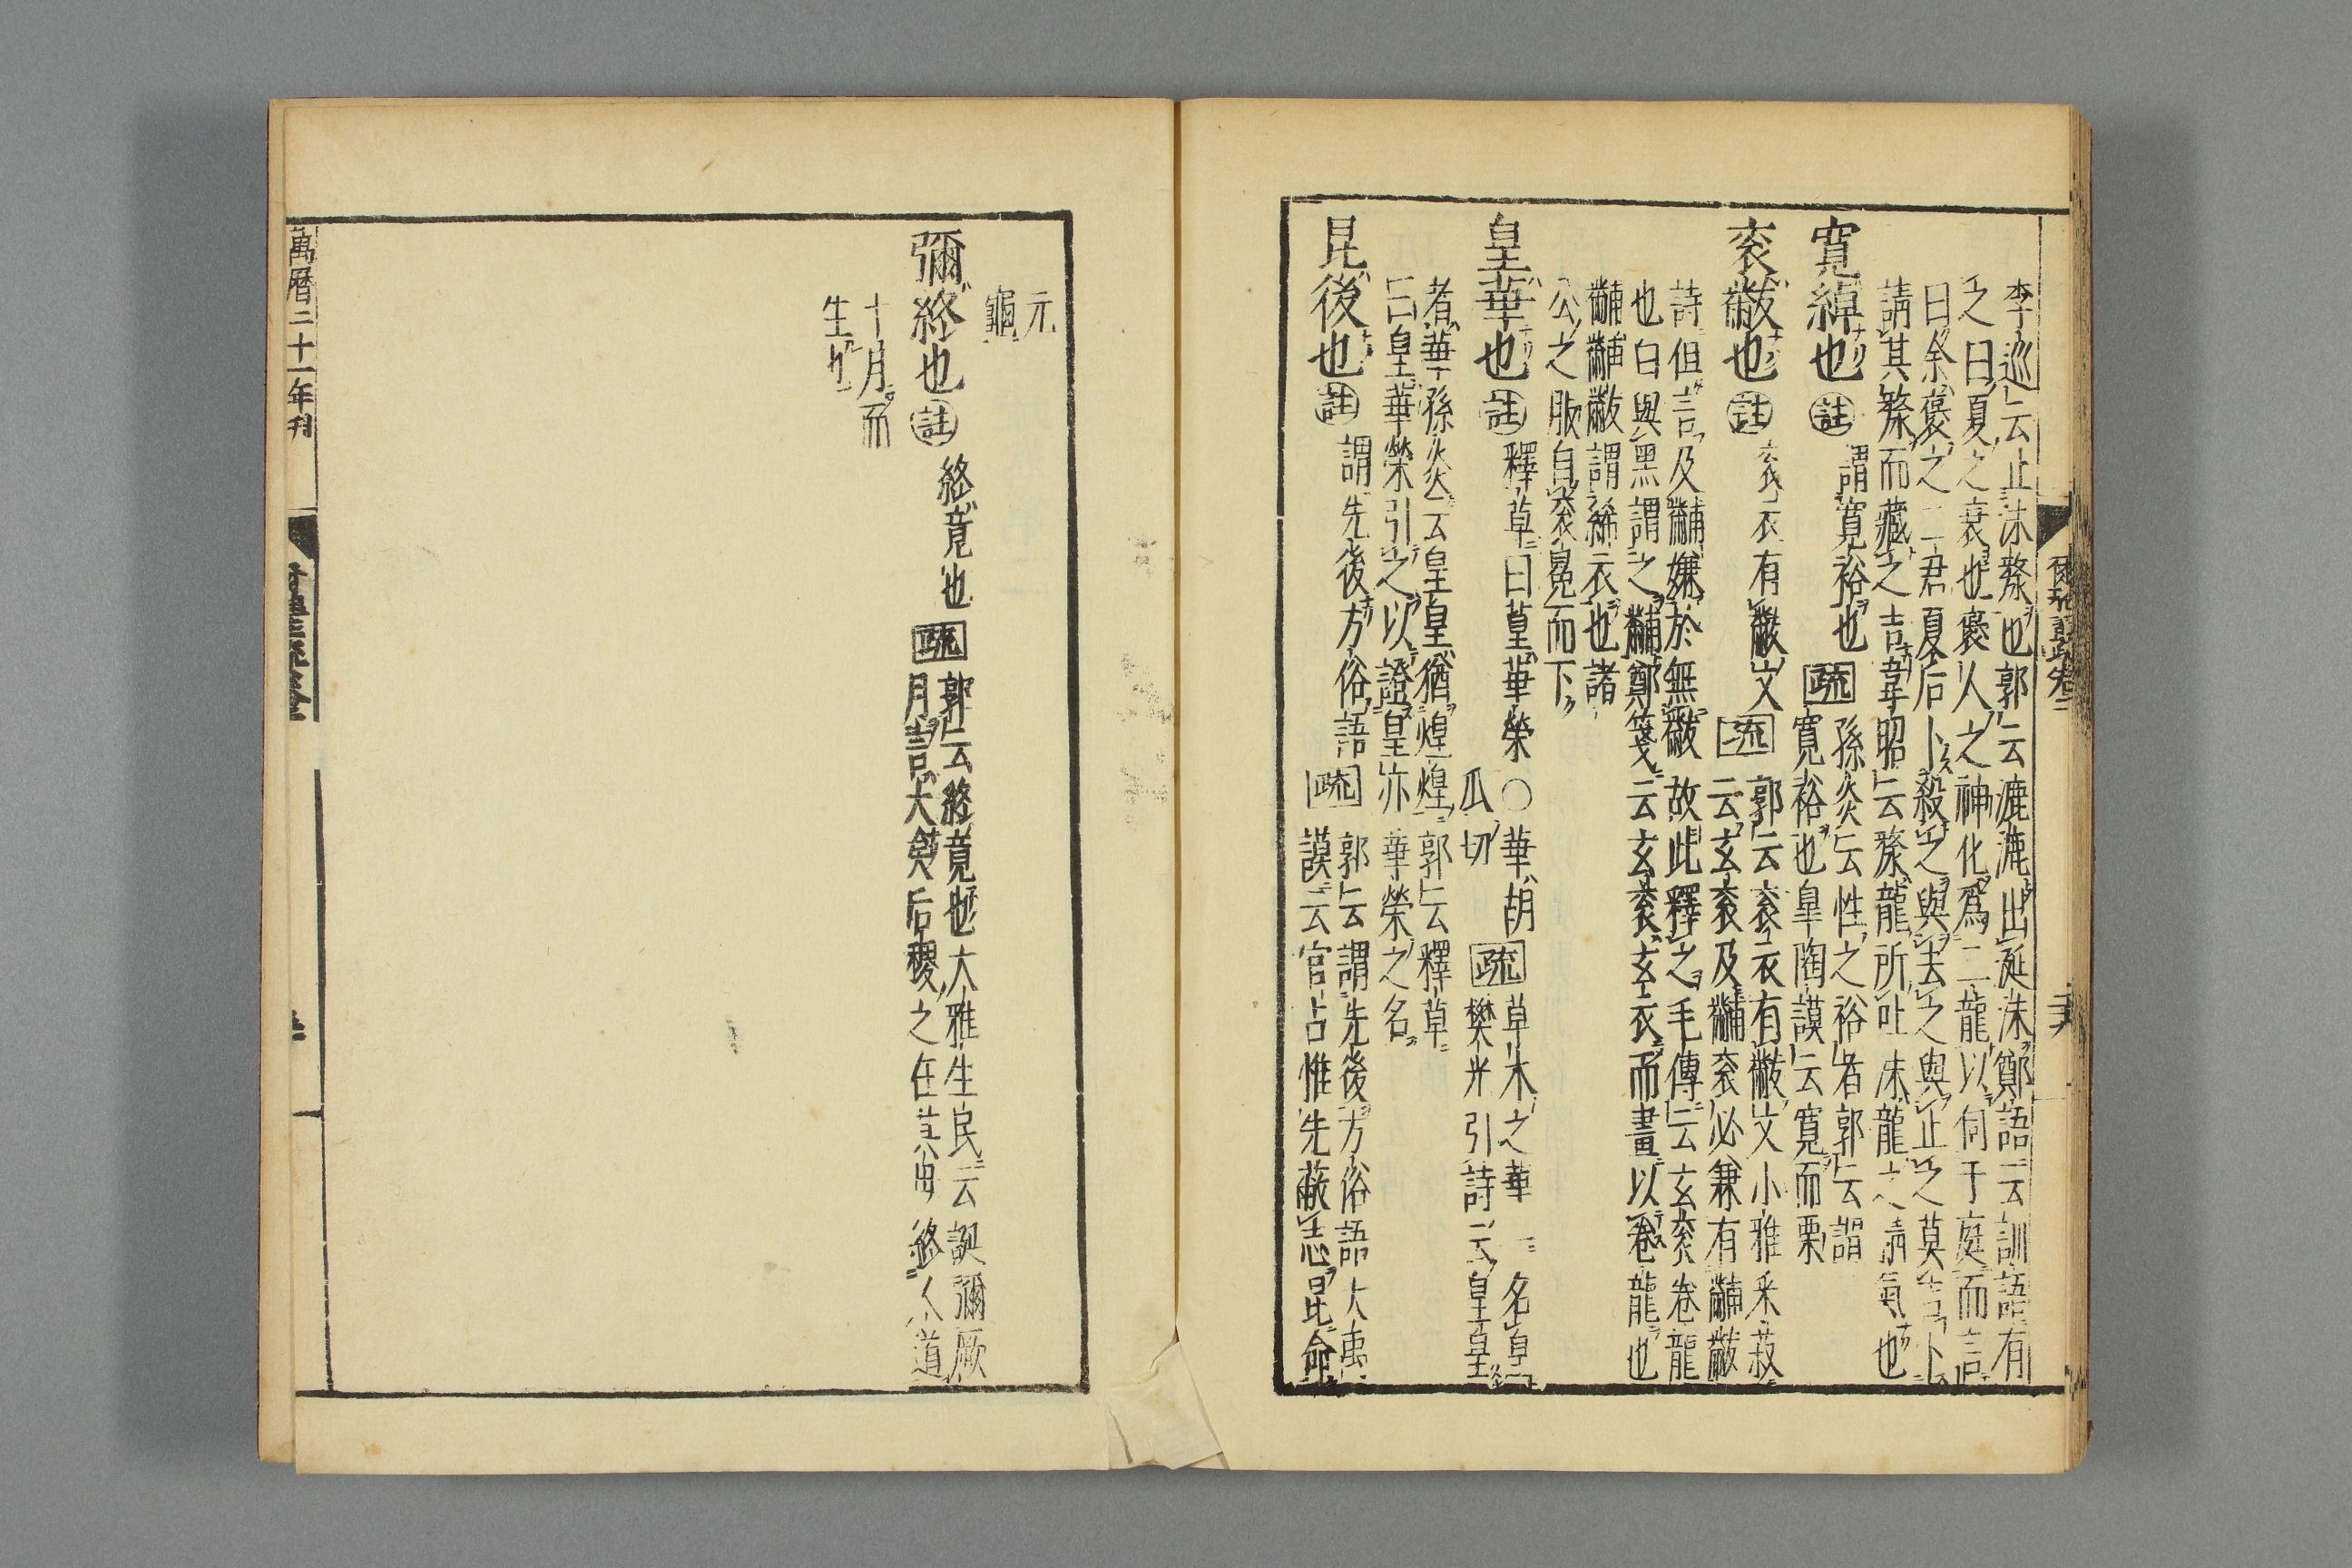 李巡云止沫漦也郭云漉漉出涎沫鄭語云訓語有
之曰夏之衰也褒人之神化爲二龍以伺于庭而言
曰余褒之二君夏后卜殺之與去之與止之莫吉卜
請其漦而藏之吉韋昭云漦龍所吐沫龍之精氣也
寬綽也
註
謂寬裕也
疏
孫炎云性之裕者郭云謂
寬裕也皐陶謨云寬而栗
衮黻也
註
衮衣有黻文
疏
郭云衮衣有黻文小雅釆菽
云玄衮及黼衮必兼有黼黻
詩但言及黼嫌於無黻故此釋之毛傳云玄衮卷龍
也白與黑謂之黼鄭箋云玄衮玄衣而畫以卷龍也
黼黼黻謂絺衣也諸
公之服自衮冕而下
皇華也
註
釋草曰葟華榮
○華胡
瓜切
疏
草木之華一名皇
樊光引詩云皇皇
者華孫炎云皇皇猶煌煌郭云釋草
曰皇華榮引之以證皇亦華榮之名
昆後也
註
謂先後方俗語
疏
郭云謂先後方俗語大禹
謨云官占惟先蔽志昆命
元
龜
彌終也
註
終竟也
疏
郭云終竟也大雅生民云誕彌厥
月言大矣后稷之在其母終人道
十月而
生也
萬曆二十一年刊